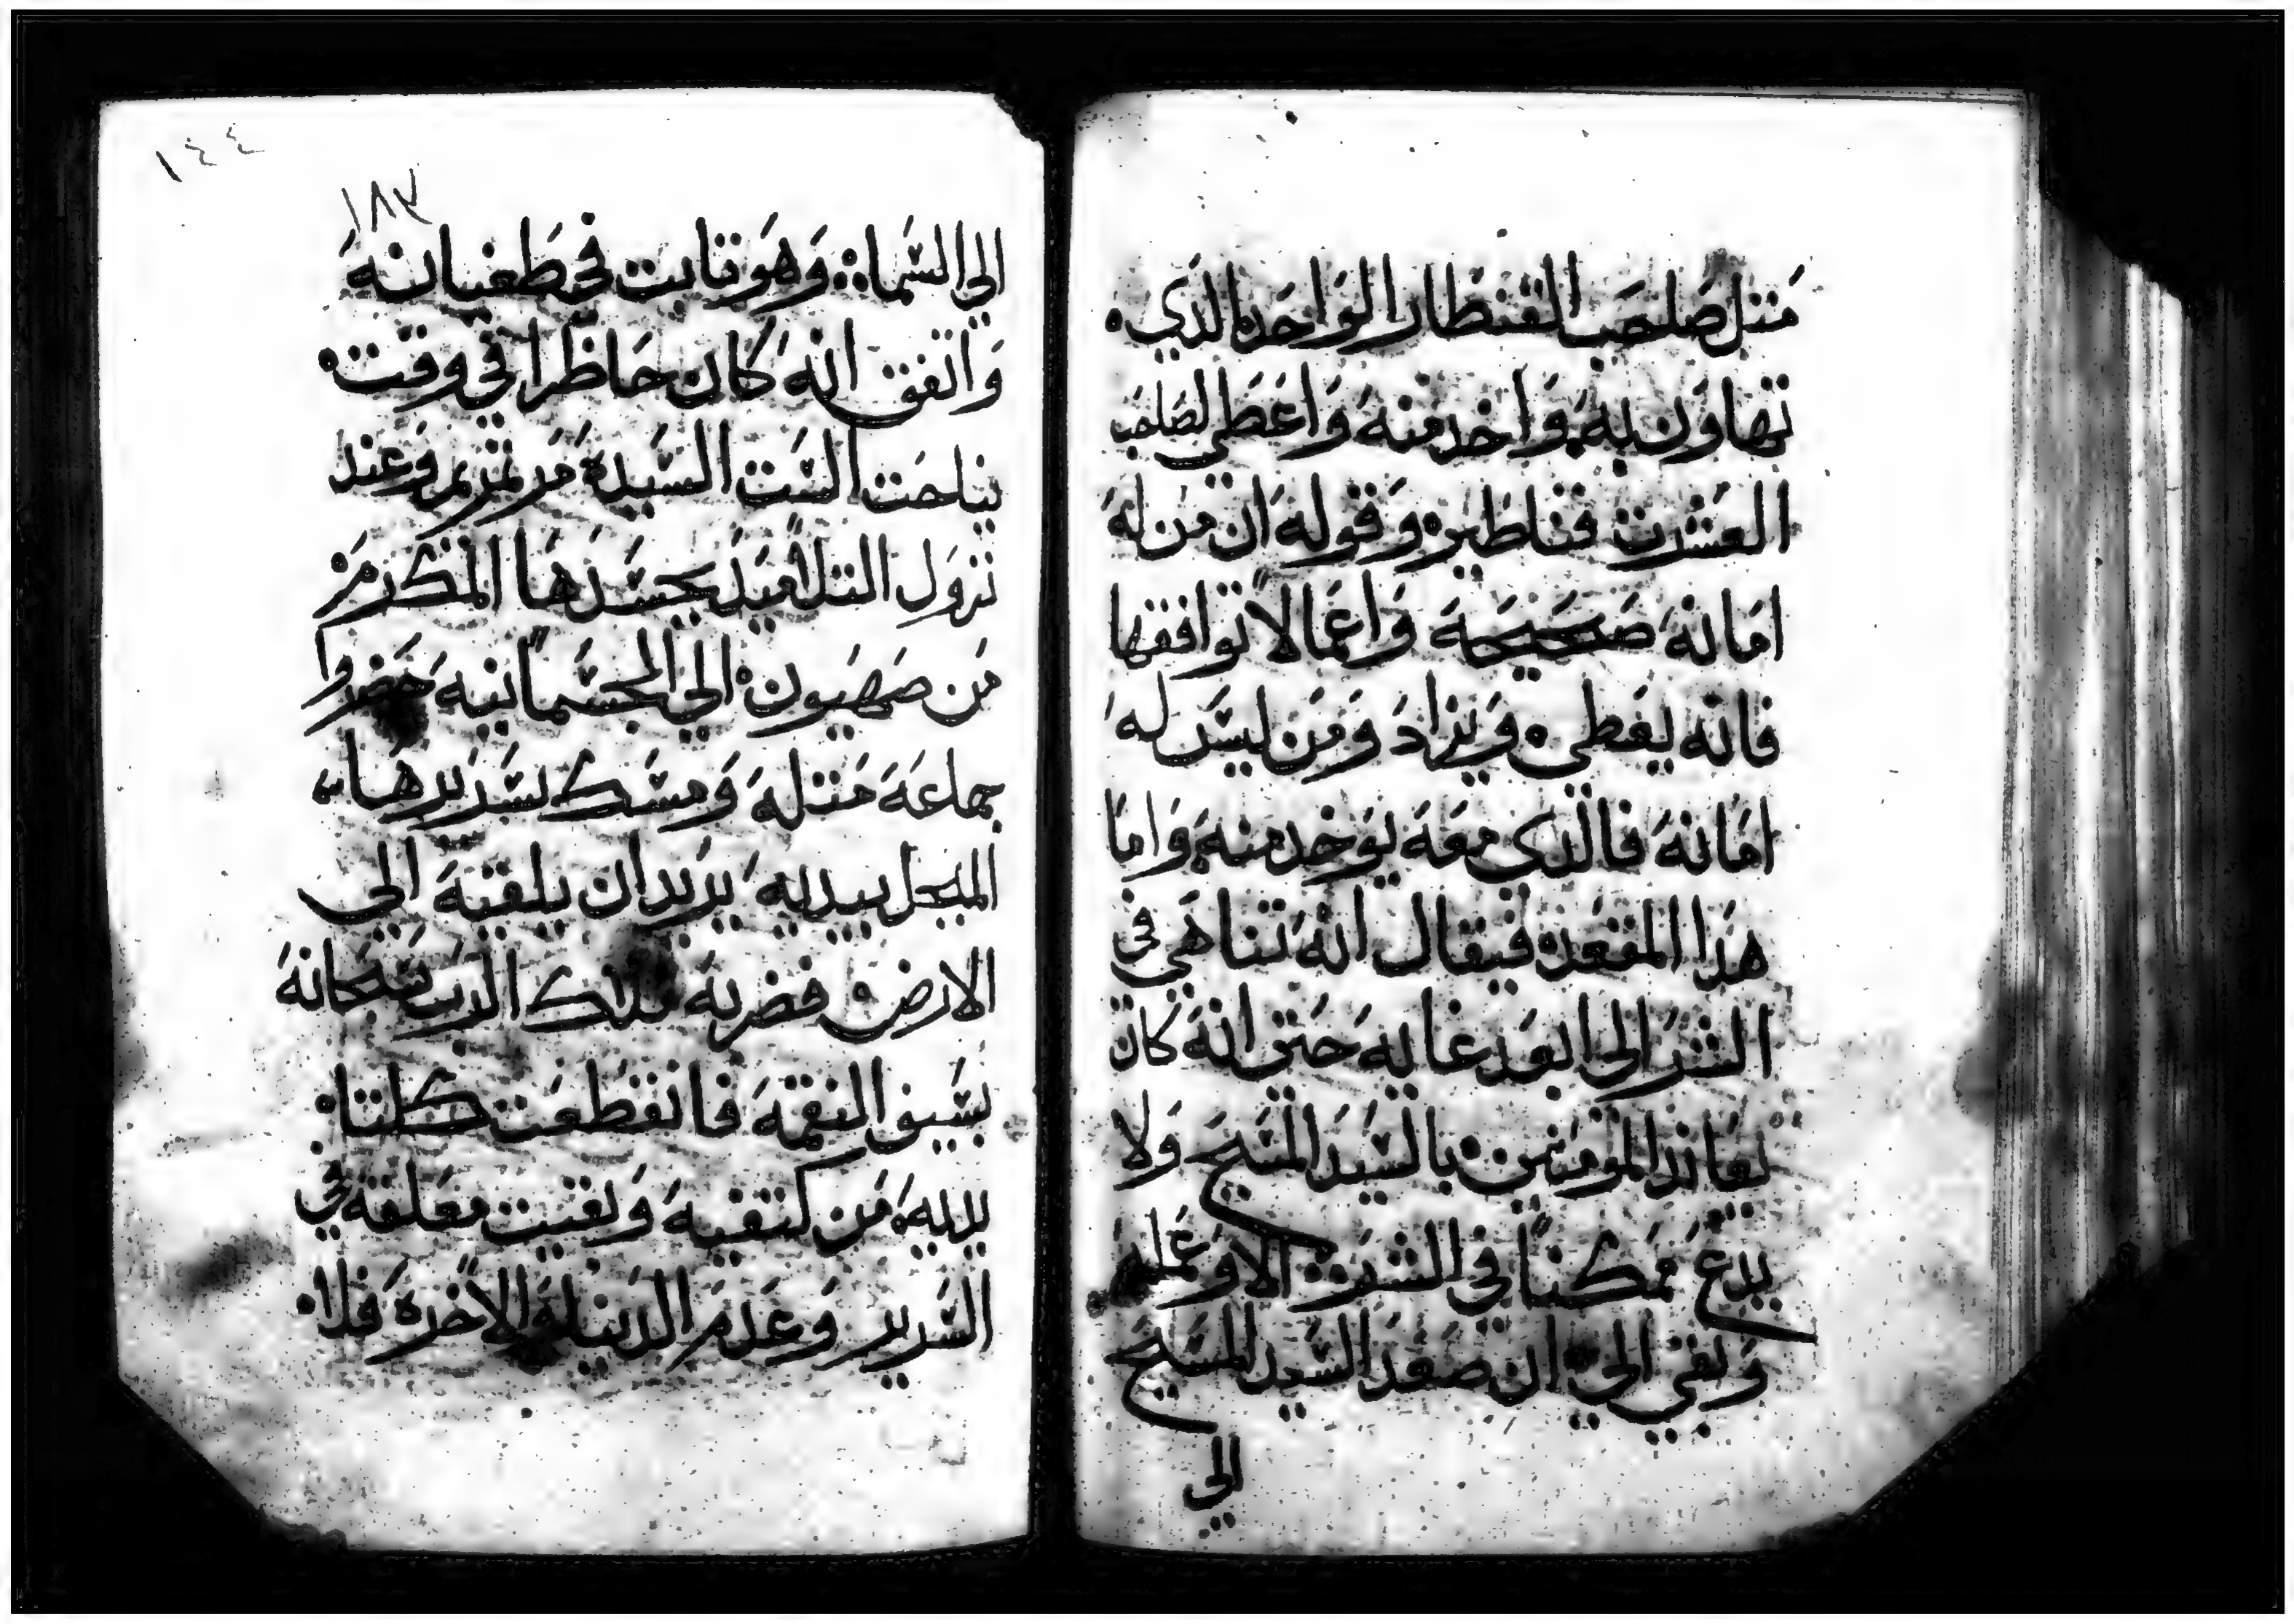 متل صاحب القنطار الواحد الدي
تهاون به واخد منه واعطي لصاحب
العشرت قناطير وقوله ان من له
امانه صحيحه واعمالا توافقها
فانه يعطي ويزاد ومن ليس له
امانه فالدي معه يوخد منه واما
هدا المقعد فيقال انه تناهي في
الشر الي ابعد غايه حتي انه كان
يعاند المومنين بالسيد المسيح ولا
يدع ممكنا في الشر الا وعمله
وبقي الي ان صعد السيد المسيح
الي
١٤٤
١٨٣
الي السما وهو تابت في طغيانه
واتفق انه كان حاظرا في وقت
نياحت الست السيده مرتمريم وعند
نزول التلاميد بجسدها المكرم
من صهيون الي الجسمانيه حضر و
جماعه متله ومسك سريرها
المبجل بيديه يريد ان يلقيه الي
الارض فضربه ملاك الرب سبحانه
بسيف النقمه فانقطعت كلتا
يديه من كتفيه وبقيت معلقه في
السرير وعدم الدنيا والاخره فلا